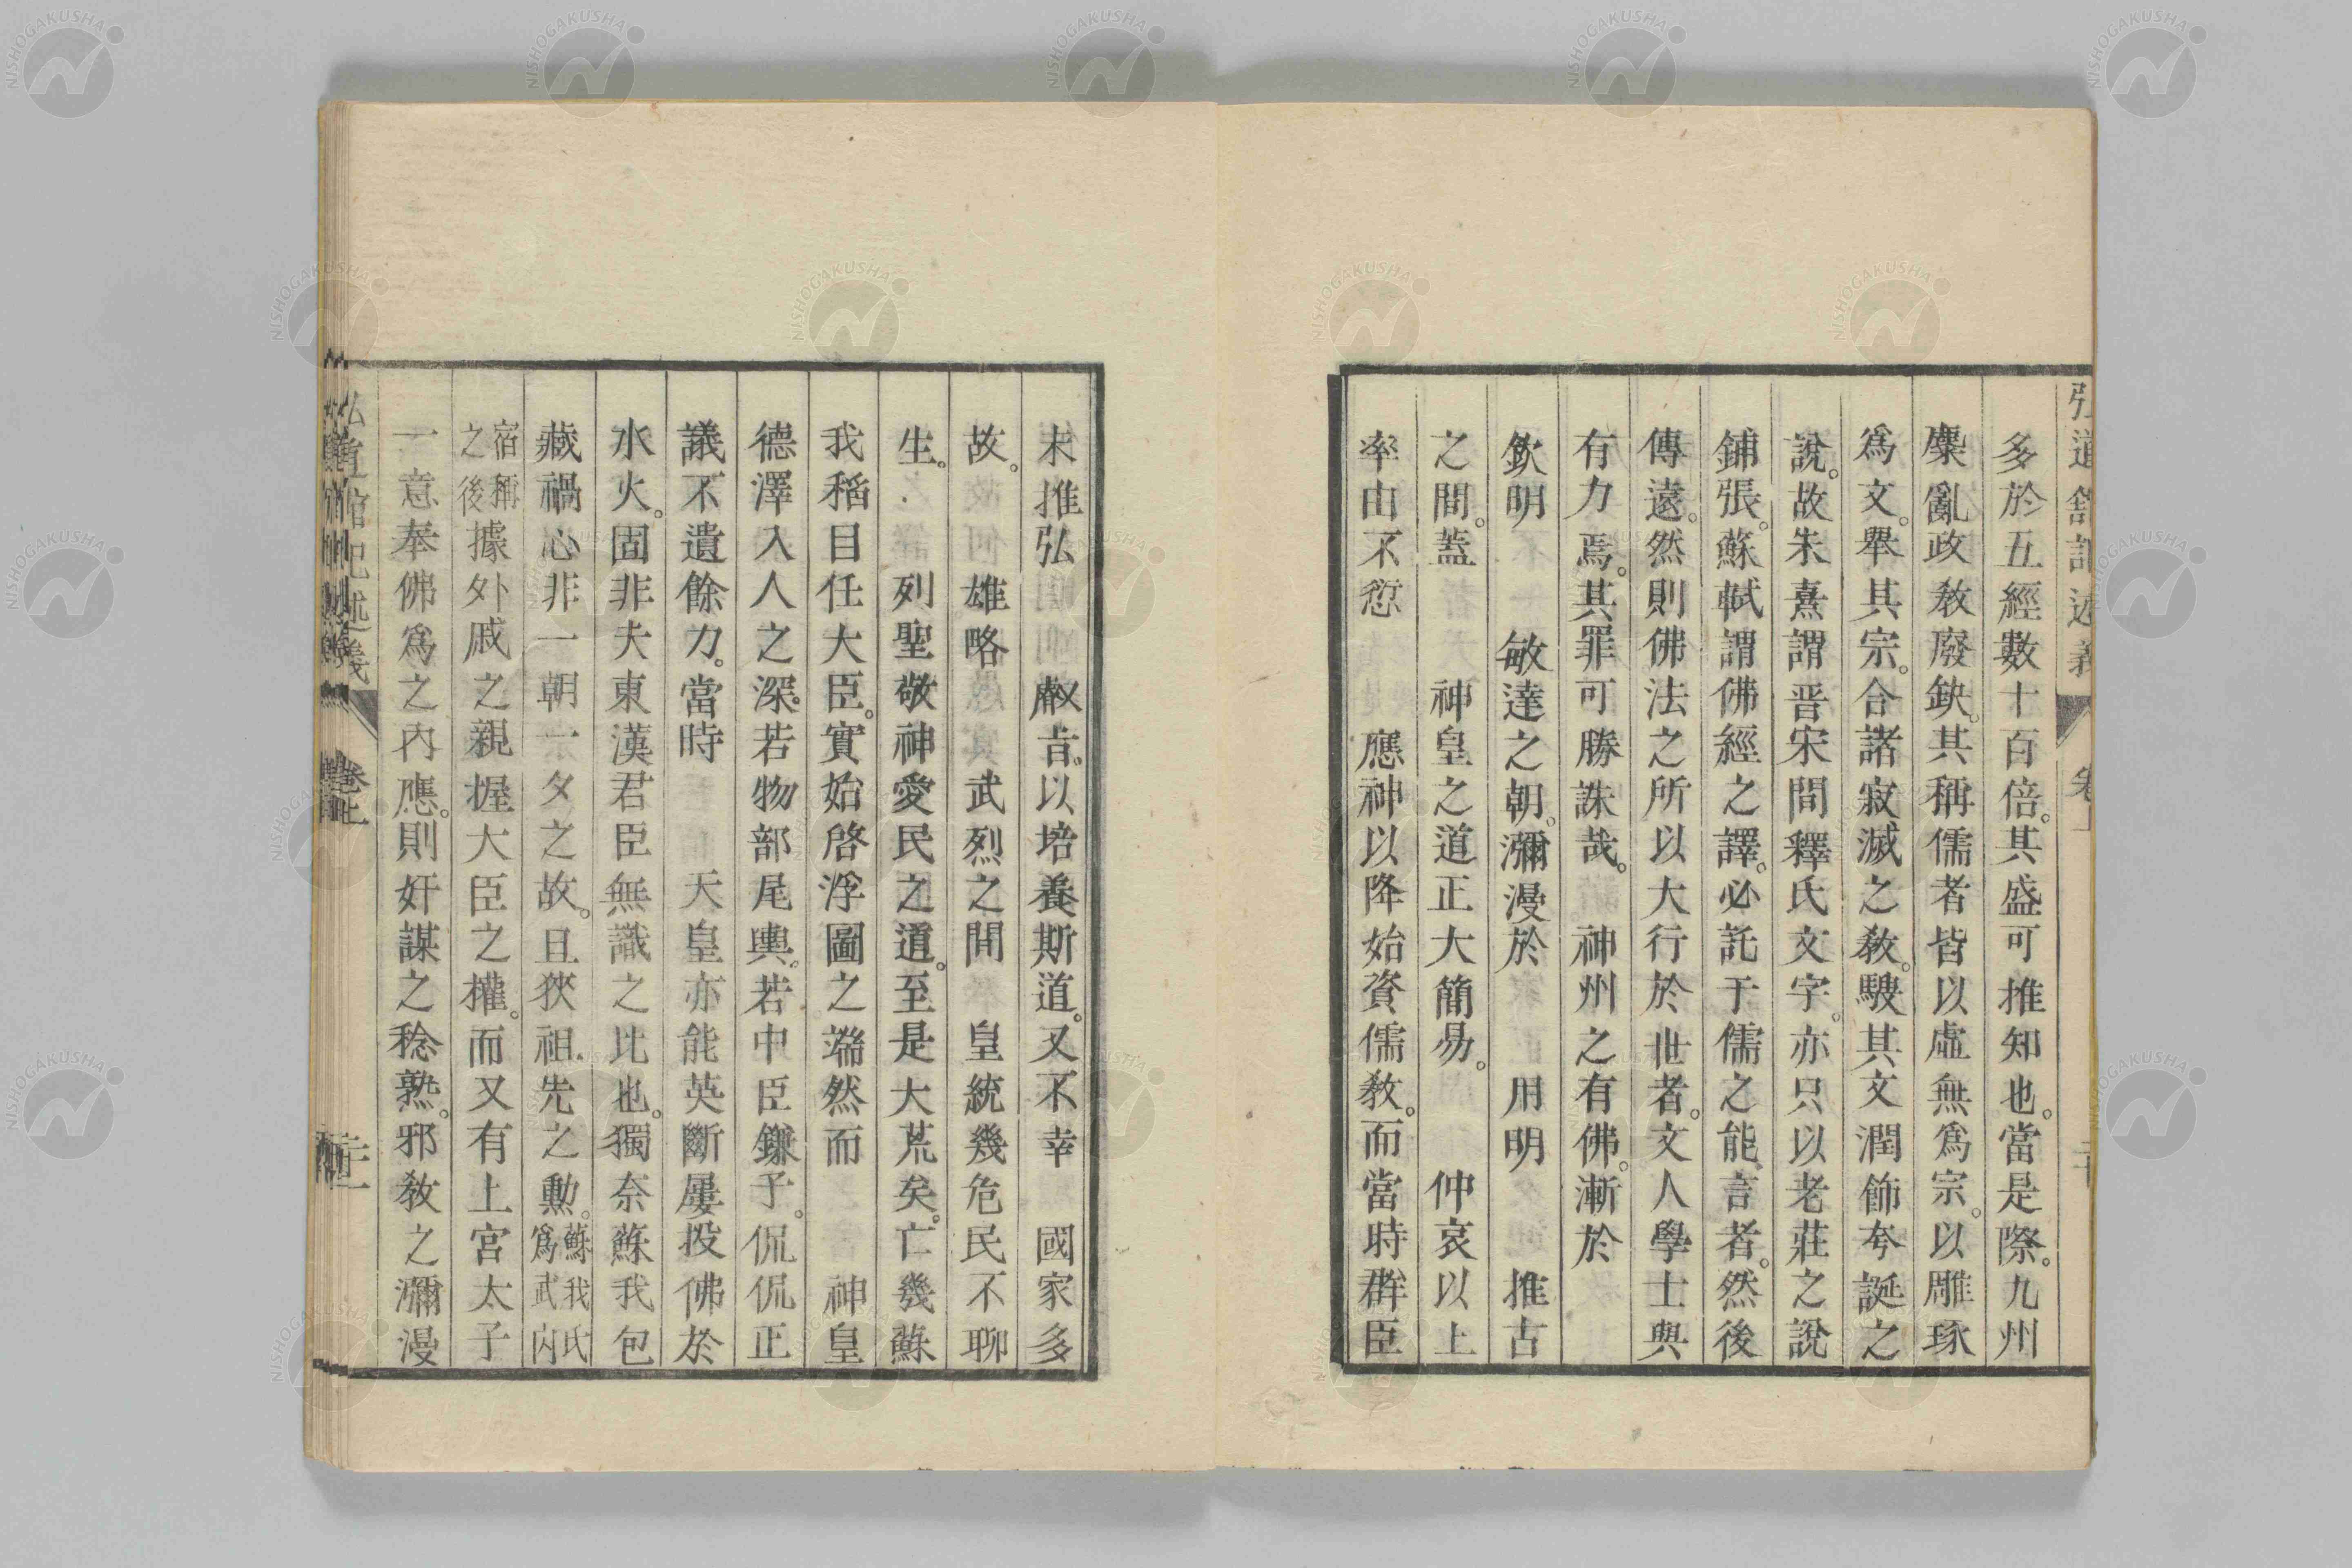 弘道館記述義 卷上
多於五經數十百倍。其盛可推知也。當是際。九州
糜亂政敎廢缺。其稱儒者皆以虛無爲宗。以雕琢
爲文。舉其宗。合諸寂滅之敎。騁其文潤飾夸誕之
說。故朱熹謂晋宋間釋氏文字。亦只以老莊之說
鋪張。蘇軾謂佛經之譯。必託于儒之能言者。然後
傳遠。然則佛法之所以大行於世者。文人學士與
有力焉。其罪可勝誅哉。神州之有佛。漸於
欽明 敏達之朝。瀰漫於 用明 推古
之間。蓋 神皇之道正大簡易。 仲哀以上
率由不愆 應神以降始資儒敎。而當時群臣
未推弘 猷旨。以培養斯道。又不幸 國家多
故。 雄略 武烈之間 皇統幾危民不聊
生。 列聖敬神愛民之道。至是大荒矣。亡幾蘇
我稻目任大臣。實始啓浮圖之端然而 神皇
德澤入人之深。若物部尾輿。若中臣鎌子。侃侃正
議不遺餘力。當時 天皇亦能英斷屢投佛於
水火。固非夫東漢君臣無識之比也。獨奈蘇我包
藏禍心非一朝一夕之故。且狹祖先之勳。蘇我氏爲武內
宿稱之後據外戚之親握大臣之權。而又有上宮太子
一意奉佛爲之內應。則奸謀之稔熟。邪敎之瀰漫
弘道館記述義 卷上 二十一
NISHOGAKUSHA